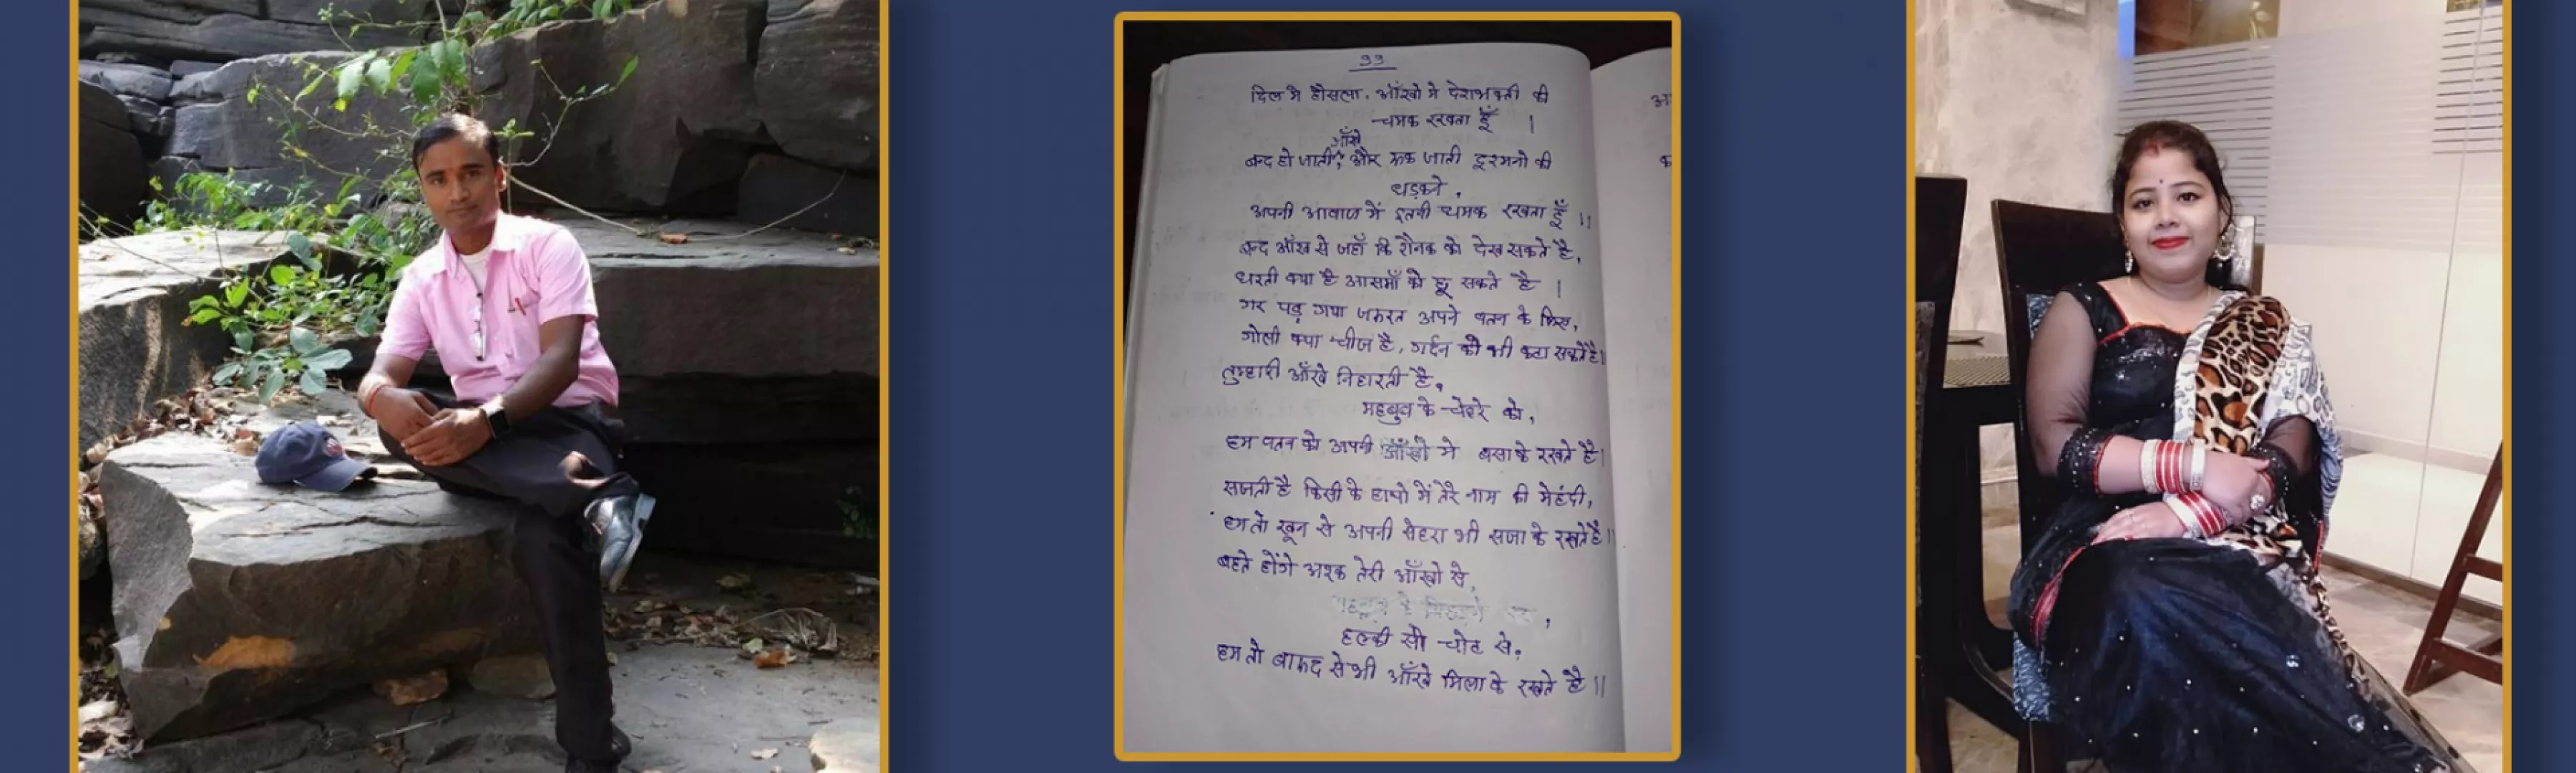 ११
दिल मे हौसला, आँखो मे देशभक्ती की
चमक रखता हूँ ।
आँखे
बन्द हो जाती, और रूक जाती दुश्मनो की
धड़कने,
अपनी आवाज में इतनी चमक रखता हूँ ।।
बन्द आँख से जहाँ कि रौनक को देख सकते है,
धरती क्या है आसमाँ को छू सकते है ।
गर पड़ गया जरुरत अपने वतन के लिए,
गोली क्या चीज है, गर्दन को भी कटा सकते है।
तुम्हारी आँखे निहारती है,
महबुब के चेहरे को,
हम वतन को अपनी आँखो मे बसा के रखते है।
सजती है किसी के हाथो में तेरे नाम की मेहंदी,
हम तो खून से अपनी सेहरा भी सजा के रखते है।।
बहते होंगे अश्क तेरी आँखो से,
हल्की सी चोट से,
हम तो बारूद से भी आँखे मिला के रखते है ।।